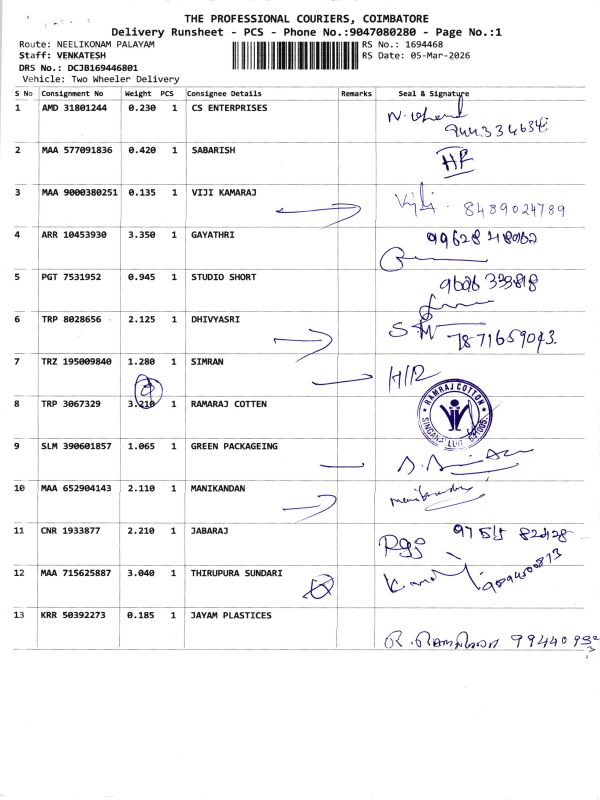 THE PROFESSIONAL COURIERS, COIMBATORE
Delivery Runsheet - PCS - Phone No.:9047080280 - Page No.:1
Route: NEELIKONAM PALAYAM RS No.: 1694468
Staff: VENKATESH RS Date: 05-Mar-2026
DRS No.: DCJB169446801
Vehicle: Two Wheeler Delivery
S No Consignment No Weight PCS Consignee Details Remarks Seal & Signature
1 AMD 31801244 0.230 1 CS ENTERPRISES
2 MAA 577091836 0.420 1 SABARISH
3 MAA 9000380251 0.135 1 VIJI KAMARAJ 8489024789
4 ARR 10453930 3.350 1 GAYATHRI
5 PGT 7531952 0.945 1 STUDIO SHORT
6 TRP 8028656 2.125 1 DHIVYASRI 7871659043
7 TRZ 195009840 1.280 1 SIMRAN
8 TRP 3067329 3.210 1 RAMARAJ COTTEN RAMRAJ COTTON
9 SLM 390601857 1.065 1 GREEN PACKAGEING
10 MAA 652904143 2.110 1 MANIKANDAN
11 CNR 1933877 2.210 1 JABARAJ
12 MAA 715625887 3.040 1 THIRUPURA SUNDARI
13 KRR 50392273 0.185 1 JAYAM PLASTICES